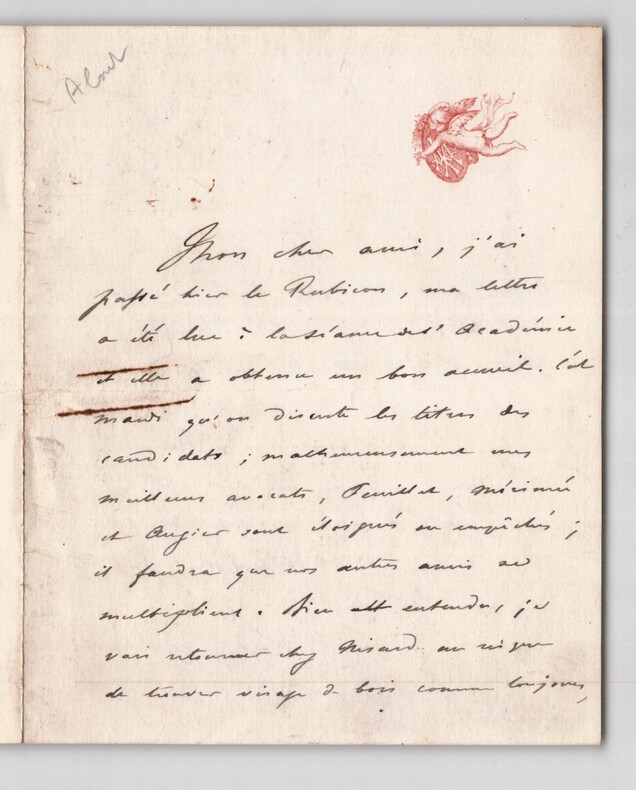 Mon cher ami, j'ai
passé hier le Rubicon, ma lettre
a été lue à la séance de l'Académie
et elle a obtenu un bon accueil. C'est
mardi qu'on discute les titres des
candidats ; malheureusement mes
meilleurs avocats, Feuillet, Mérimée
et Augier sont éloignés ou empêchés ;
il faudra que nos autres amis se
multiplient. Bien est entendu, je
vais retourner chez Nisard au risque
de trouver visage de bois comme toujours,